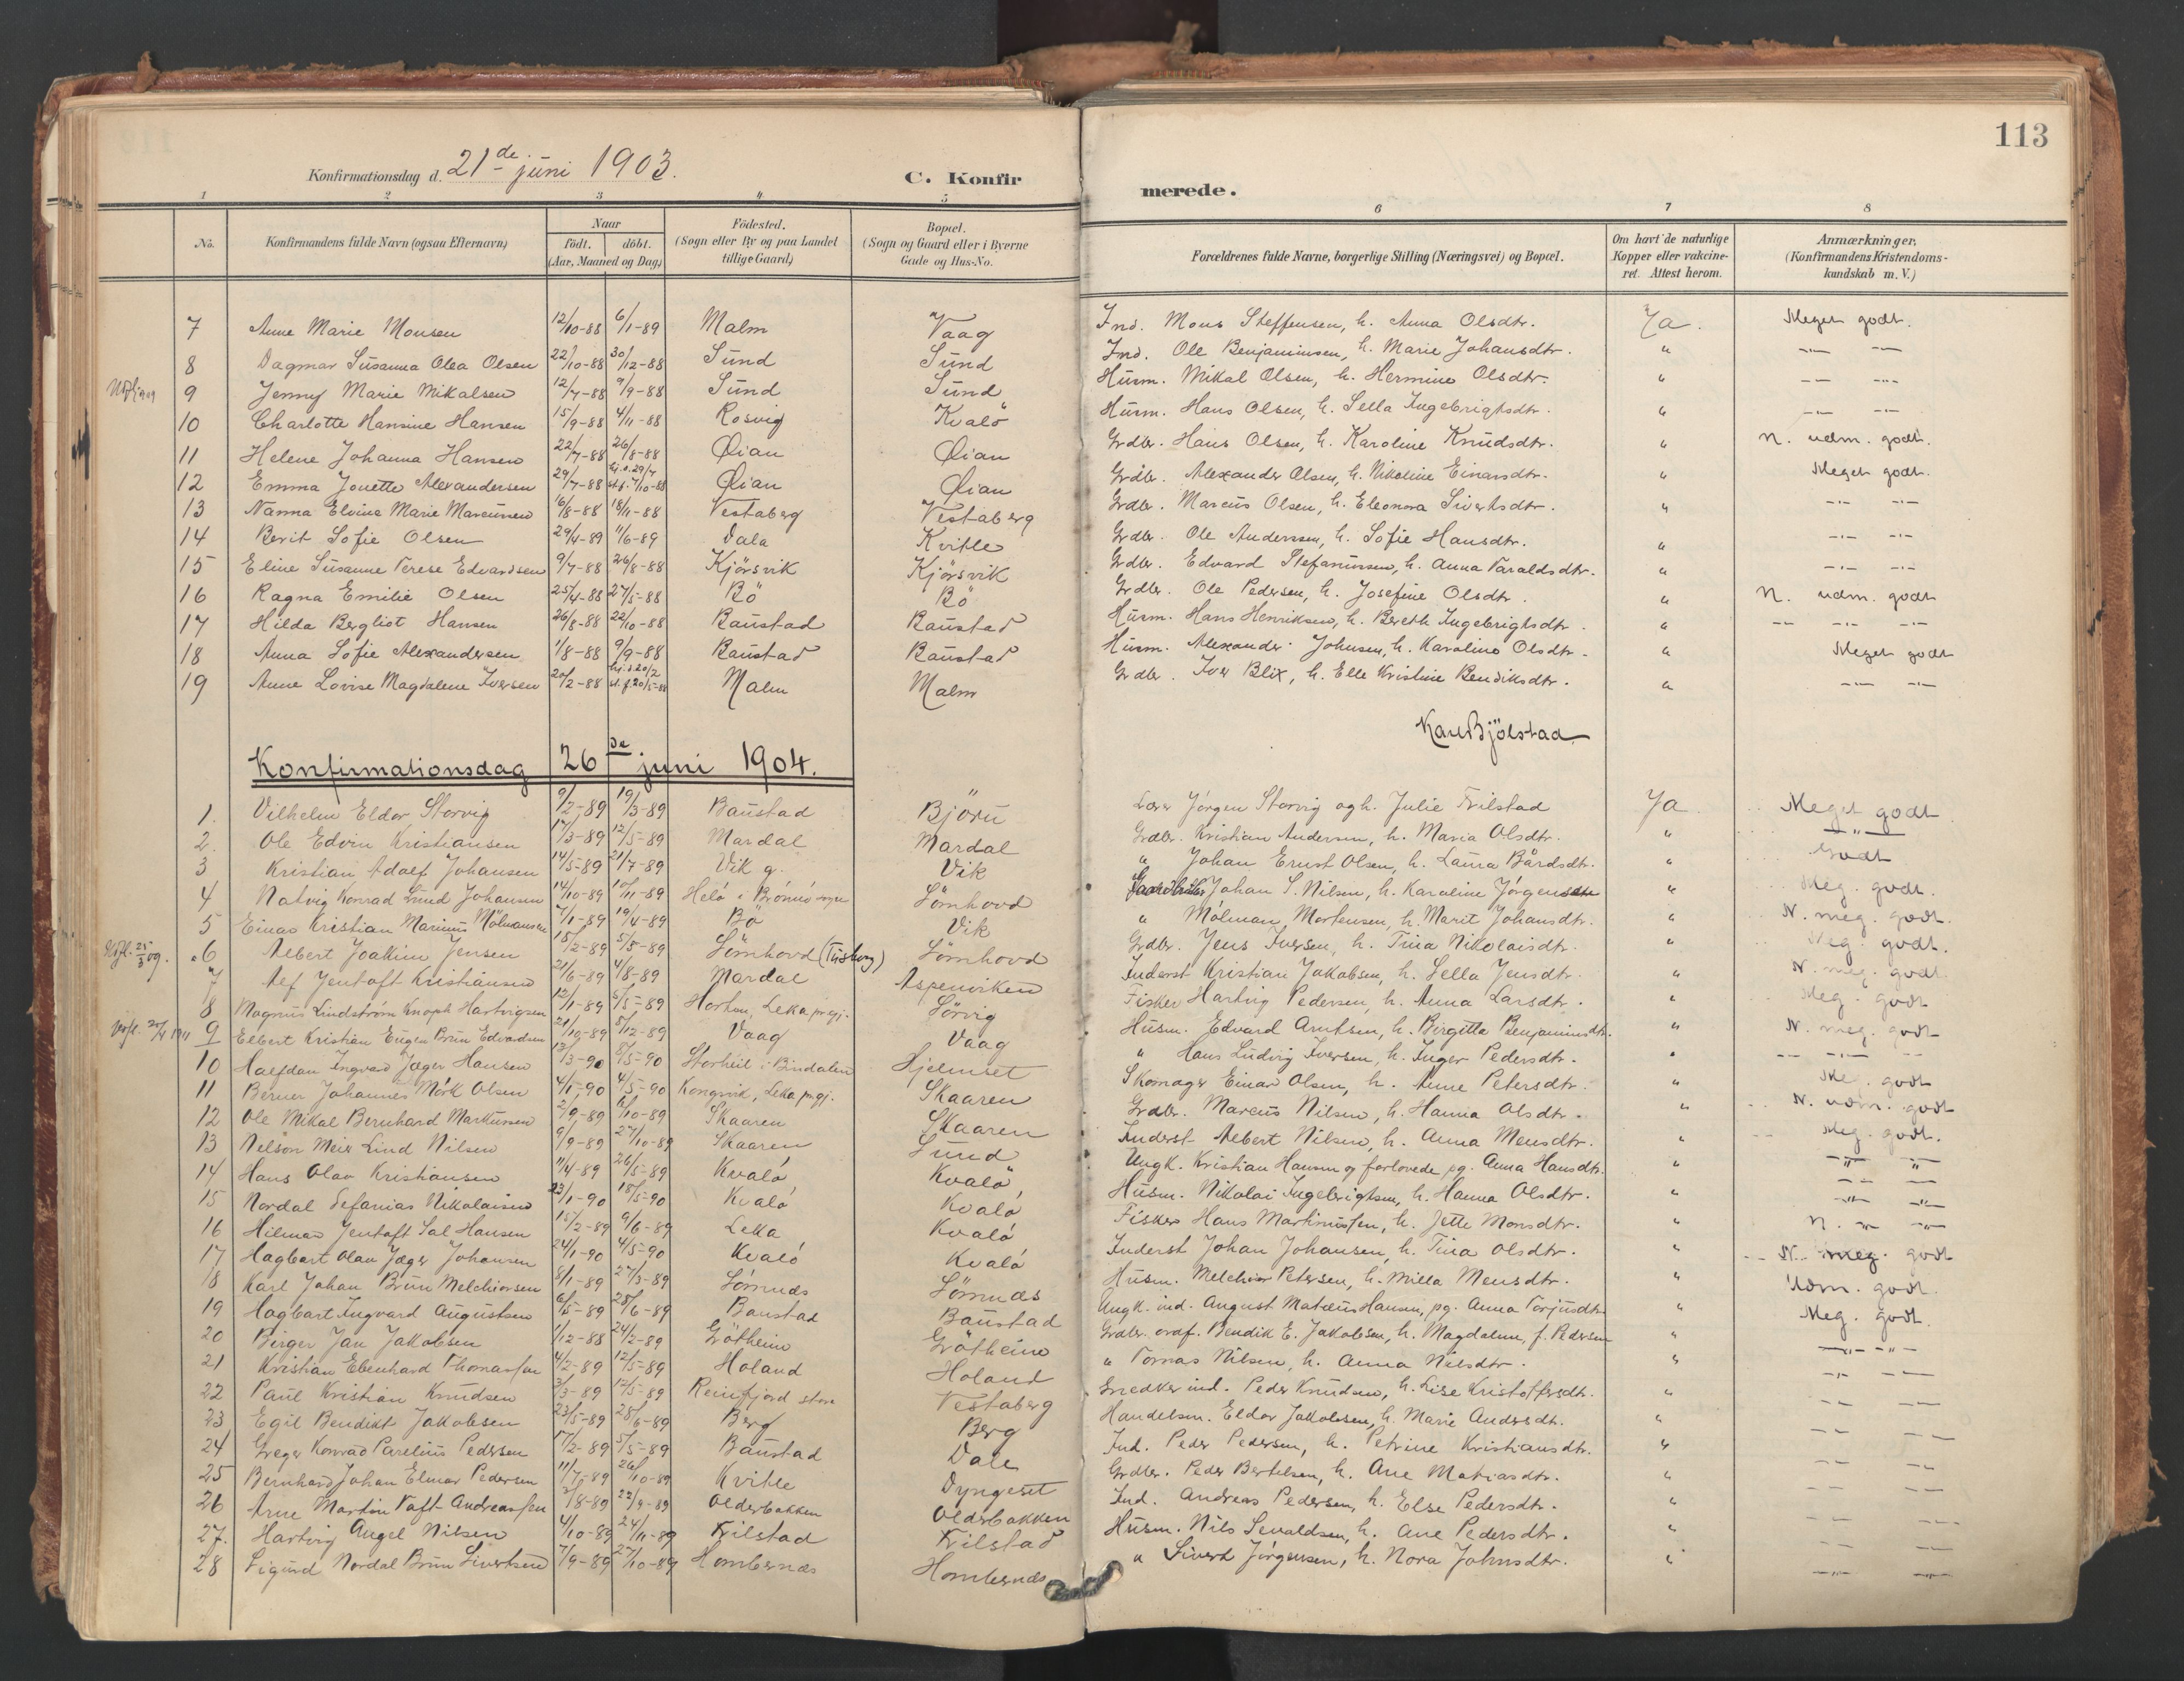 113
Konfirmationsdag d. 21de juni 1903.
C. Konfir
merede.
1 2 3 4 5 6 7 8
No.
Konfirmandens fulde Navn (ogsaa Efternavn)
Naar
födt. döbt.
(Aar, Maaned og Dag)
Födested.
(Sogn eller By og paa Landet
tillige Gaard)
Bopæl.
(Sogn og Gaard eller i Byerne
Gade og Hus-No.
Forældrenes fulde Navne, borgerlige Stilling (Næringsvei) og Bopæl.
Om havt de naturlige
Kopper eller vakcine-
ret. Attest herom.
Anmærkninger,
(Konfirmandens Kristendoms-
kundskab m. V.)
7 Anne Marie Monsen 12/10-88 6/1-89 Malm Vaag Ind. Mons Steffensen, h. Anna Olsdtr. Ja. Meget godt.
8 Dagmar Susanna Olea Olsen 22/10-88 30/12-88 Sund Sund Ind. Ole Benjaminsen, h. Marie Johansdtr. " -"- -"-
9 Jenny Marie Mikalsen 12/7-88 9/9-88 Sund Sund Husm. Mikal Olsen, h. Hermine Olsdtr. " -"- -"-
10 Charlotte Hansine Hansen 15/9-88 4/11-88 Rosvig Kvalö Husm. Hans Olsen, h. Sella Ingebrigtsdtr. " -"- -"-
11 Helene Johanna Hansen 22/7-88 26/8-88 Qian Qian Grdbr. Hans Olsen, h. Karoline Knudsdtr. " N. udm. godt.
12 Emma Jonette Alexandersen 29/7-88 hj.d. 29/7 st.f. 7/10-88 Qian Qian Grdbr. Alexander Olsen, h. Nikoline Einarsdtr. " Meget godt.
13 Nanna Elvine Marie Marcussen 16/8-88 18/11-88 Vestaberg Vestaberg Grdbr. Marcus Olsen, h. Eleonora Sivertsdtr. " -"- -"-
14 Berit Sofie Olsen 29/4-89 11/6-89 Dala Kvitle Grdbr. Ole Anderssen, h. Sofie Hansdtr. " -"- -"-
15 Eline Susanne Terese Edvardsen 9/7-88 26/8-88 Kjörsvik Kjörsvik Grdbr. Edvard Stefanussen, h. Anna Taraldsdtr. " -"- -"-
16 Ragna Emilie Olsen 25/4-88 27/5-88 Bö Bö Grdbr. Ole Pedersen, h. Josefine Olsdtr. " N. udm. godt
17 Hilda Bergliot Hansen 26/8-88 22/10-88 Baustad Baustad Husm. Hans Henriksen, h. Bereth Ingebrigtsdtr. " -"- -"- -"-
18 Anna Sofie Alexandersen 1/8-88 9/9-88 Baustad Baustad Husm. Alexander Johnsen, h. Karoline Olsdtr. " Meget godt
19 Anne Lovise Magdalene Iversen 20/2-88 hj.d. 20/2 st.f. 20/5-88 Malm Malm Grdbr. Iver Blix, h. Elle Kristine Bendiksdtr. " -"- -"-
Karl Bjölstad
Konfirmationsdag 26de juni 1904.
1. Vilhelm Eldor Storvig 9/2-89 19/3-89 Baustad Björu Lærer Jörgen Storvig og h. Julie Trilstad Ja Meget godt
2. Ole Edvin Kristiansen 17/3-89 12/5-89 Mardal Mardal Grdbr. Kristian Andersen, h. Maria Olsdtr. " -"-
3 Kristian Adolf Johansen 14/5-89 21/7-89 Vik g. Vik " Johan Ernst Olsen, h. Laura Bårdsdtr. " Godt
4 Natvig Konrad Lund Johansen 14/10-89 10/11-89 Helö i Brönnö Sömhovd Johan S. Nilsen, h. Karoline Jörgensdtr " Meg. godt.
5 Einar Kristian Marinus Mölmansen 7/1-89 19/4-89 Bö Vik " Mölman Mortensen, h. Marit Johansdtr. " N. meg. godt.
Utfl. 25/3 09. 6 Albert Joakim Jensen 18/2-89 5/5-89 Sömhovd Sömhovd Grdbr. Jens Iversen, h. Tina Nikolaisdtr. " Meg. godt.
7 Alf Jentoft Kristiansen 21/6-89 4/8-89 Mardal Aspenviken Inderst Kristian Jakobsen, h. Sella Jensdtr. " N. meg. godt
8 Magnus Lindström Knoph Hartvigsen 12/1-89 5/5-89 Horten, Leka prgj. Sörvig Fisker Hartvig Pedersen, h. Anna Larsdtr. " Meg. godt
9 Elbert Kristian Eugen Brun Edvardsen 21/10-89 8/12-89 Vaag Vaag Husm. Edvard Arntsen, h. Birgitte Benjaminsdtr. " N. meg. godt
10 Halfdan Ingvard Jæger Hansen 13/3-90 8/5-90 Storheil i Bindalen Hjelmset " Hans Ludvig Iversen, h. Inger Pedersdtr. " -"- -"- -"-
11 Berner Johannes Mörk Olsen 4/1-90 4/5-90 Kongsvik, Leka prgj. Skaaren Skomager Einar Olsen, h. Anne Petersdtr. " Meg. godt
12 Ole Mikal Bernhard Markussen 2/9-89 Skaaren Skaaren Grdbr. Marcus Nilsen, h. Hanna Olsdtr. " N. udm. godt
13 Nelson Meier Lind Nilsen 9/9-89 27/10-89 Skaaren Sund Inderst Albert Nilsen, h. Anna Monsdtr. " Meg. godt.
14 Hans Olav Kristiansen 11/4-89 26/5-89 Kvalö Kvalö Ungk. Kristian Hansen og forlovede pg. Anna Hansdtr. " -"- -"-
15 Nordal Sefanias Nikolaisen 23/1-90 18/5-90 Kvalö Kvalö Husm. Nikolai Ingebrigtsen, h. Hanna Olsdtr. " -"- -"-
16 Hilmar Jentoft Sal Hansen 15/2-89 9/6-89 Leka Kvalö Fisker Hans Martinussen, h. Jette Monsdtr. " N. -"- -"-
17 Hagbart Olau Jæger Johansen 24/1-90 4/5-90 Kvalö Kvalö Inderst Johan Johansen, h. Tina Olsdtr. " N. meg. godt
18 Karl Johan Brun Melchiorsen 8/1-89 27/3-89 Sömnes Sömnes Husm. Melchior Petersen, h. Milla Monsdtr. " Udm. godt.
19 Hagbart Ingvard Augustsen 6/5-89 28/6-89 Baustad Baustad Ungk. ind. August Mateus Hansen, pg. Anna Torjusdtr. " Meg. godt.
20 Birger Jan Jakobsen 1/12-88 24/2-89 Grötheim Grötheim Grdbr. ordf. Bendik E. Jakobsen, h. Magdalene, f. Pedersen " -"- -"-
21 Kristian Ebenhard Thomassen 4/2-89 12/5-89 Holand Holand " Tomas Nilsen, h. Anna Nilsdtr. " -"- -"-
22 Paul Kristian Knudsen 3/3-89 12/5-89 Reinfjord store Vestaberg Snedker ind. Peder Knudsen, h. Lise Kristoffersdtr. " -"- -"-
23 Egil Bendikt Jakobsen 23/5-89 28/6-89 Berg Berg Handelsm. Eldor Jakobsen, h. Marie Andersdtr. " -"- -"-
24 Greger Konrad Parelius Pedersen 17/2-89 5/5-89 Baustad Dale Ind. Peder Pedersen, h. Petrine Kristiansdtr. " -"- -"-
25 Bernhard Johan Elmar Pedersen 11/7-89 26/10-89 Kvitle Dyngeset Grdbr. Peder Bertelsen, h. Ane Matiasdtr. " -"- -"-
26 Arne Martin Toft Andreassen 2/8-89 22/9-89 Olderbakken Olderbakken Ind. Andreas Pedersen, h. Else Pedersdtr. " -"- -"-
27. Hartvig Angel Nilsen 4/10-89 24/11-89 Trilstad Trilstad Husm. Nils Sevaldsen, h. Ane Pedersdtr. " -"- -"-
28 Sigurd Nordal Brun Sivertsen 7/9-89 27/10-89 Hombernæs Hombernæs " Sivert Jörgensen, h. Nora Johnsdtr. " -"- -"-